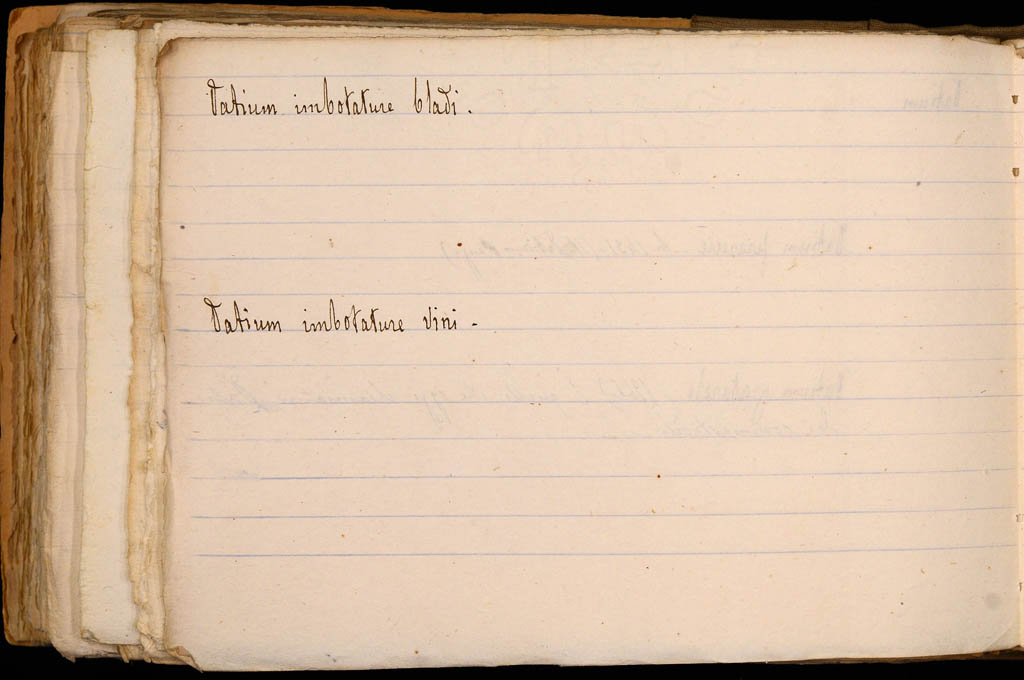 Datium imbotature bladi.
Datium imbotature vini.